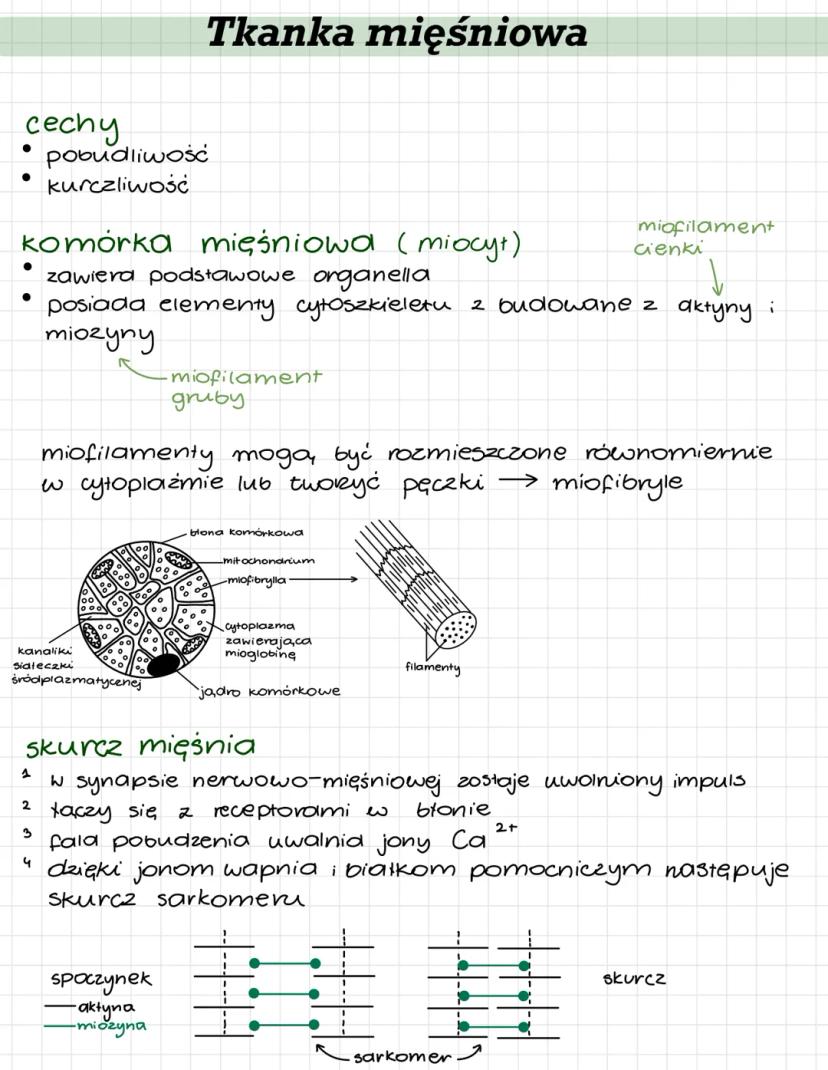 Tkanka mięśniowa
cechy
• pobudliwość
• kurczliwość
komórka mięśniowa (miocyt)
miofilament
cienki
• zawiera podstawowe organella
• posiada elementy cytoszkieletu z budowane z aktyny i
miozyny
miofilament
gruby
miofilamenty mogą być rozmieszczone równomiernie
w cytoplaźmie lub tworzyć pęczki → miofibryle
błona komórkowa
mitochondrium
miofibrylla
cytoplazma
zawierająca
mioglobinę
kanaliki
siateczki
śródplazmatycznej
jądro komórkowe
filamenty
skurcz mięśnia
1 w synapsie nerwowo-mięśniowej zostaje uwolniony impuls
2 łączy się z receptorami w błonie
3 fala pobudzenia uwalnia jony Ca²⁺
4 dzięki jonom wapnia i białkom pomocniczym następuje
skurcz sarkomeru
spoczynek
aktyna
miozyna
skurcz
sarkomer